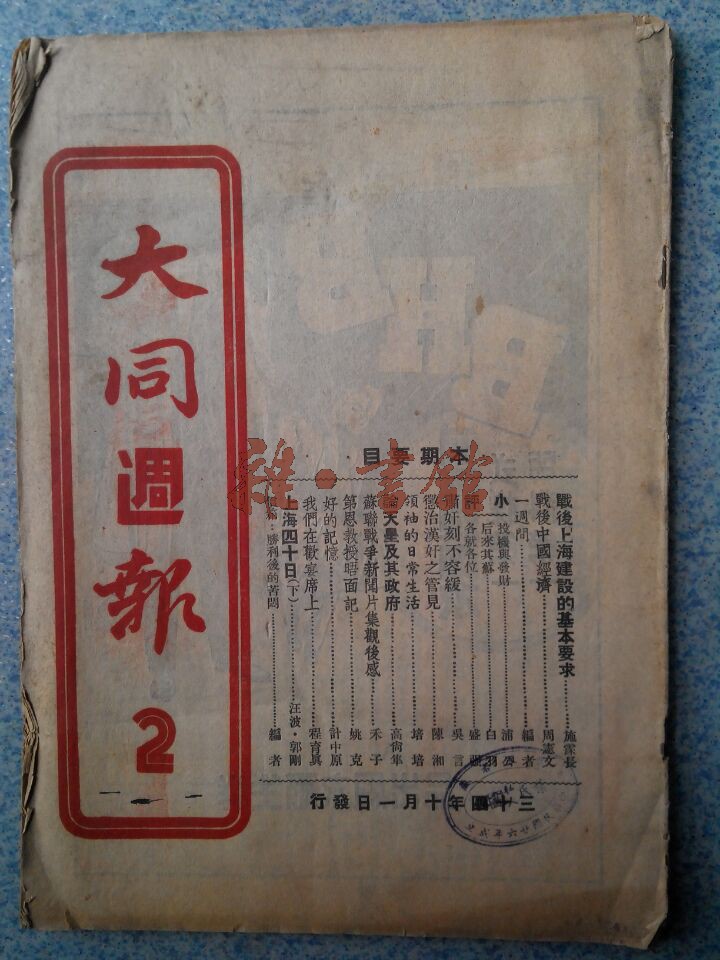 大同週報
2
本期要目
戰後上海建設的基本要求……施霖長
戰後中國經濟……周憲文
一週間……編者
小評
投機與發財……浦
后來其蘇……白羽
各就各位……盛
鋤奸刻不容緩……吳言
懲治漢奸之管見……陳湘
領袖的日常生活……培培
論天皇及其政府……高尚隼
蘇聯戰爭新聞片集觀後感……禾子
第恩教授晤面記……姚克
好的記憶……計中原
我們在歡宴席上……程育眞
上海四十日(下)……汪波·郭剛
:勝利後的苦悶……編者
三十四年十月一日發行
雜·書館